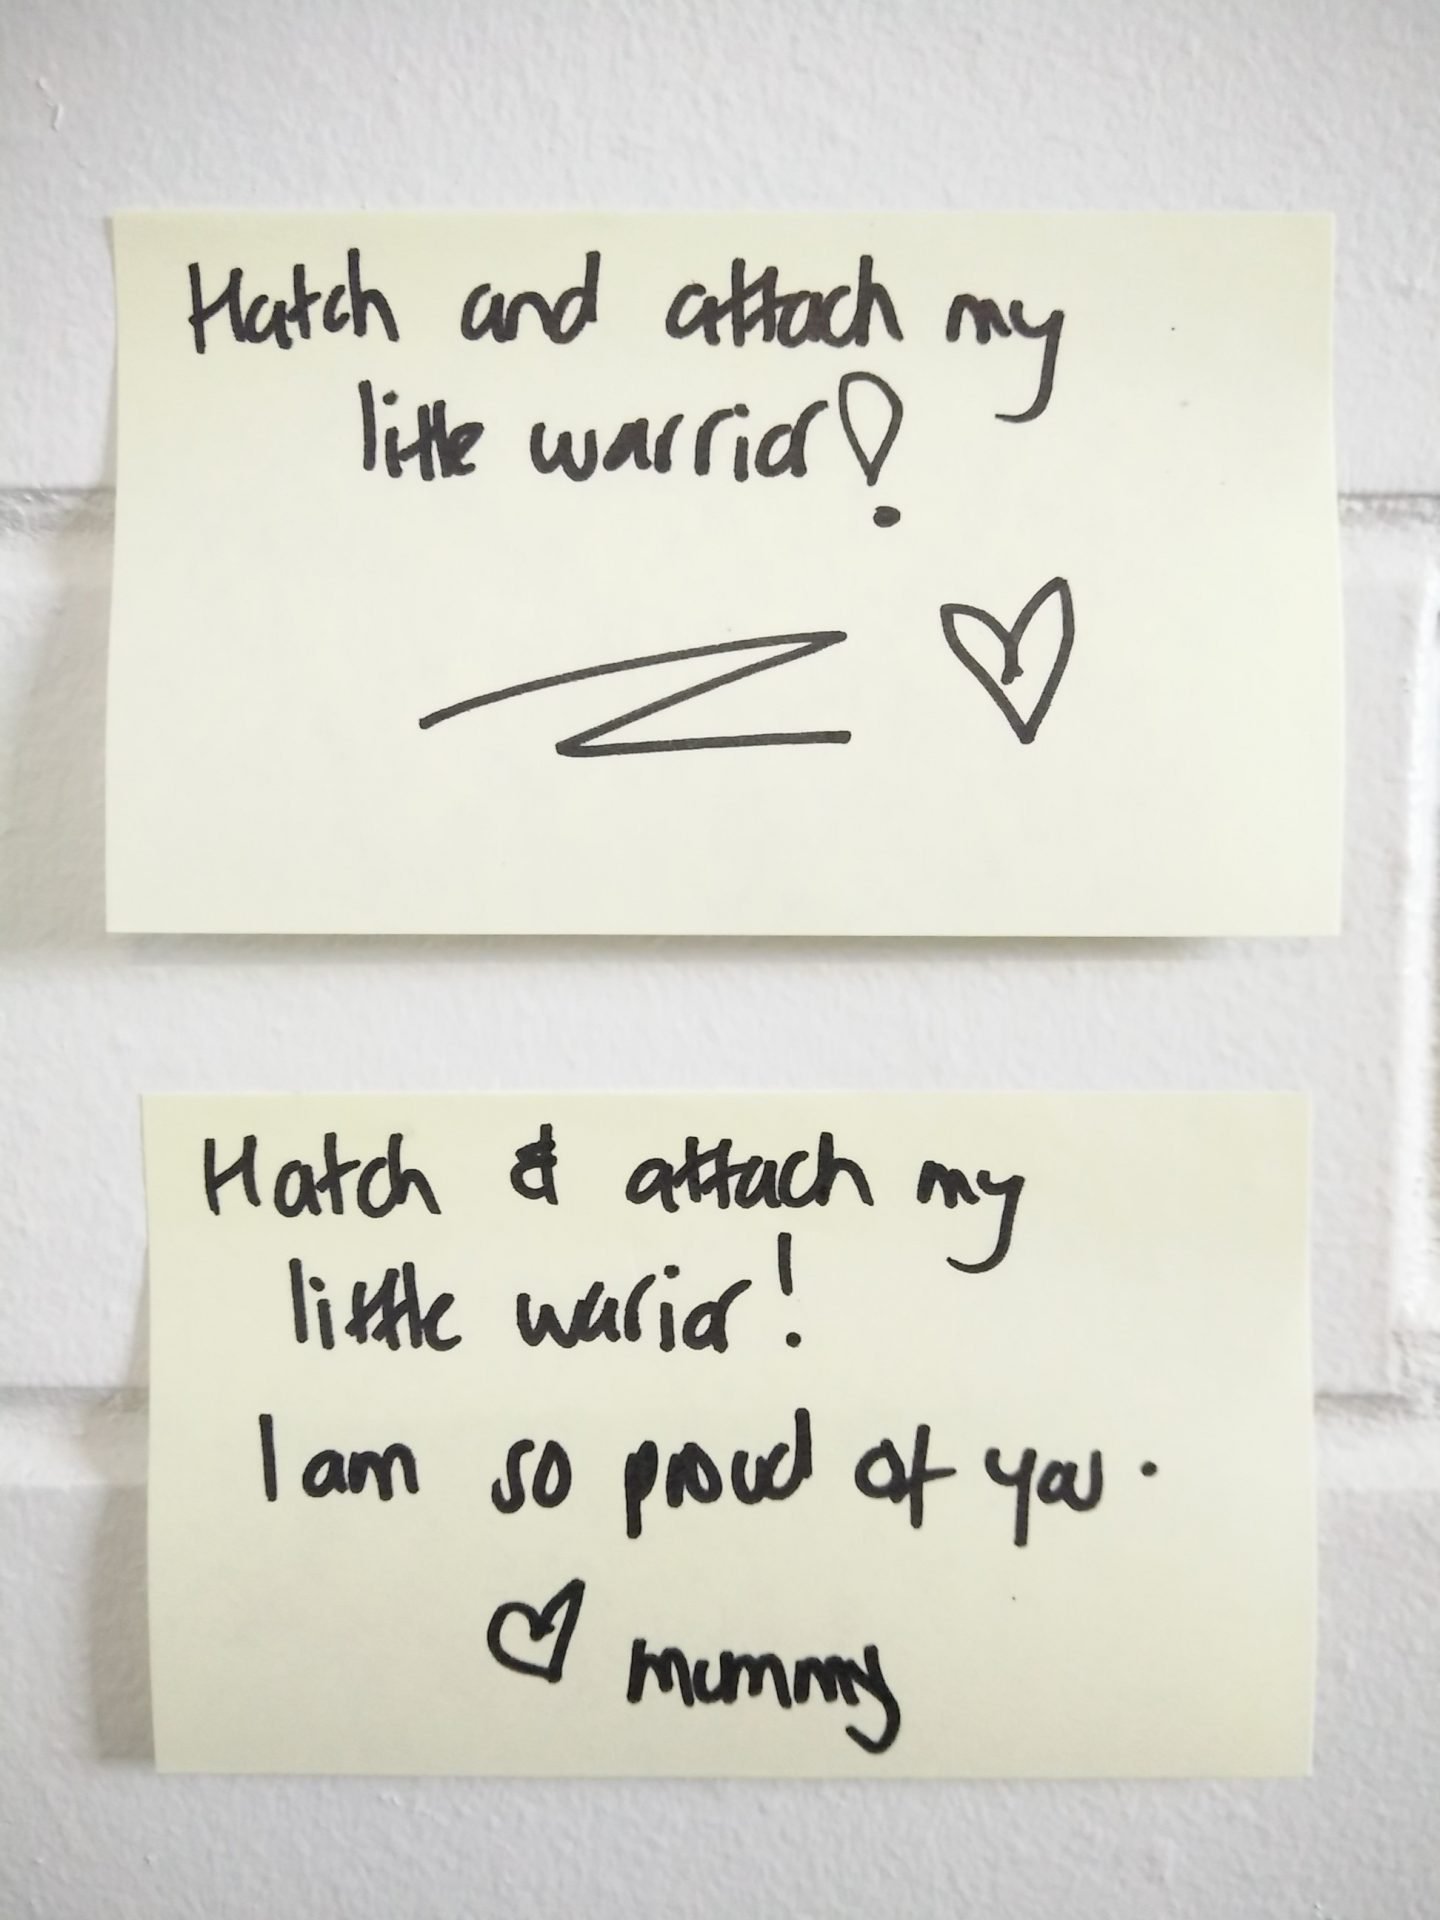 Hatch and attach my
little warrior!
Hatch & attach my
little warior!
I am so proud of you.
mummy